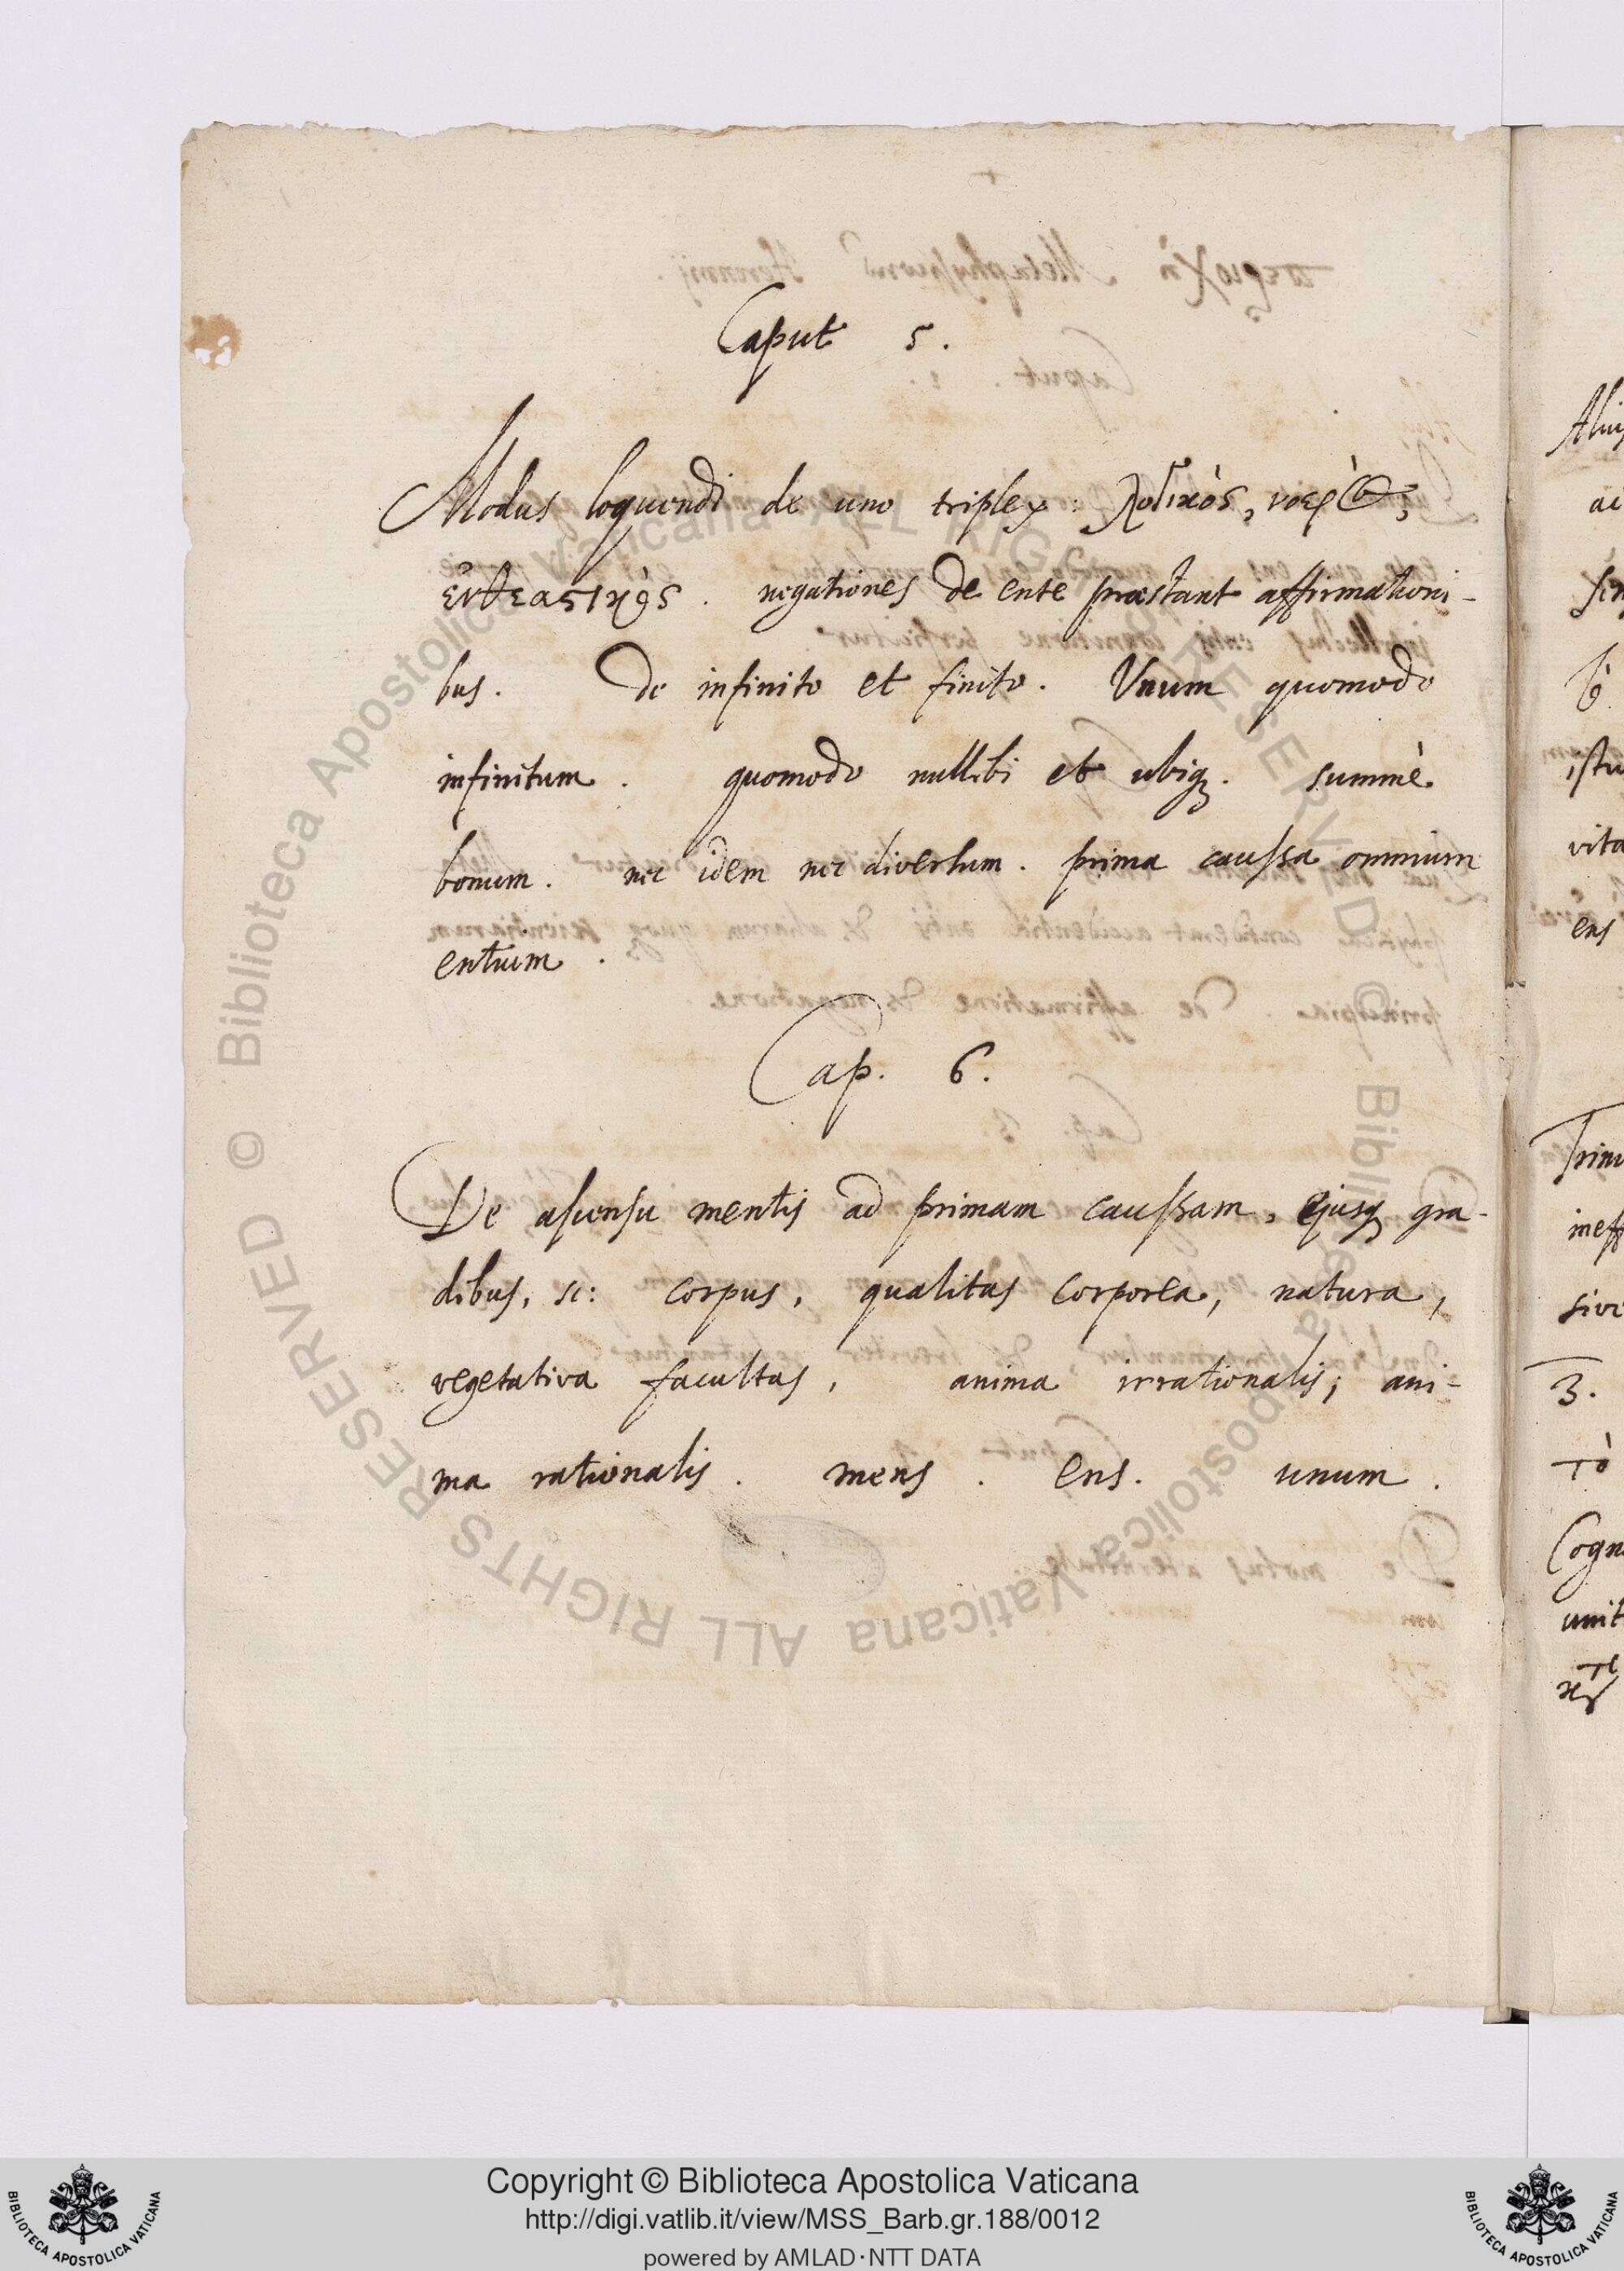 Caput 5.
Modus loquendi de uno triplex: λογικὸς, νοερὸς,
ἐνθεαστικὸς. negationes de ente præstant affirmationi-
bus. De infinito et finito. Unum quomodo
infinitum. quomodo nullibi et ubiq. summè
bonum. nec idem nec diversum. prima caussa omnium
entium.
Cap. 6.
De ascensu mentis ad primam caussam, ejusq gra-
dibus, sc: corpus, qualitas corporea, natura,
vegetativa facultas, anima irrationalis; ani-
ma rationalis. mens. ens. unum.
© Biblioteca Apostolica Vaticana ALL RIGHTS RESERVED © Biblioteca Apostolica Vaticana ALL RIGHTS RESERVED
Copyright © Biblioteca Apostolica Vaticana
http://digi.vatlib.it/view/MSS_Barb.gr.188/0012
powered by AMLAD·NTT DATA
BIBLIOTECA APOSTOLICA VATICANA
BIBLIOTECA APOSTOLICA VATICANA